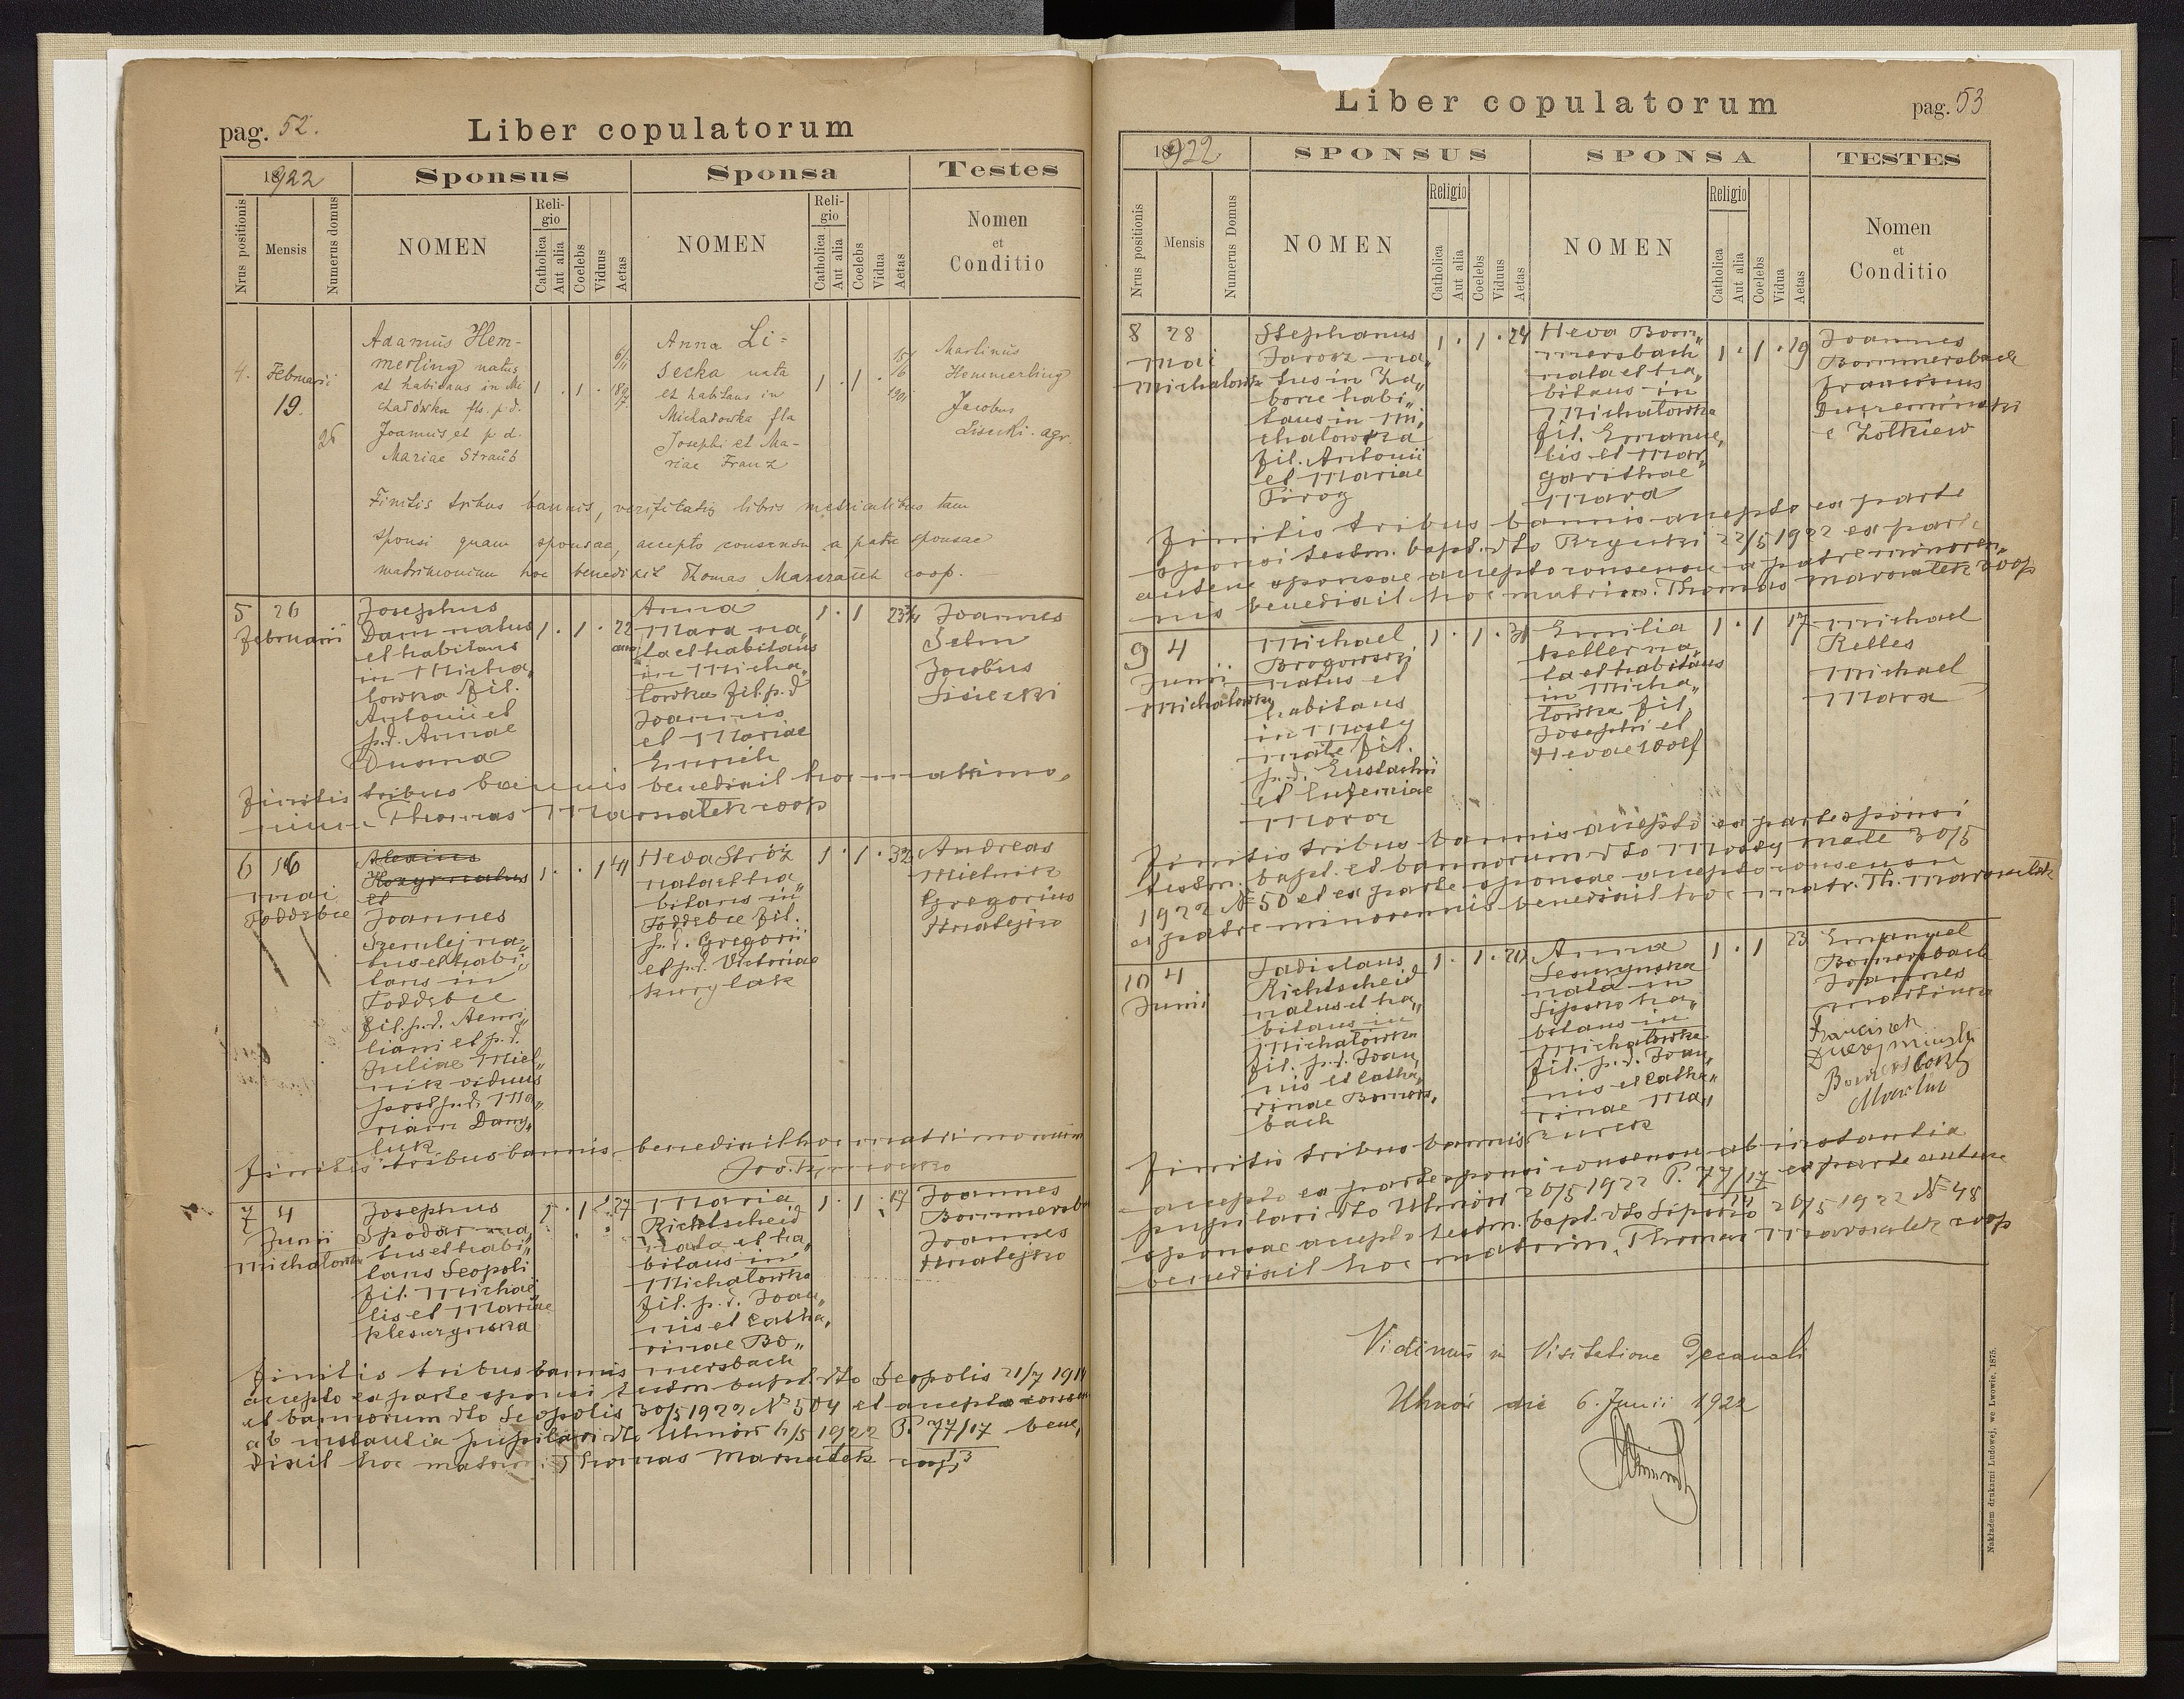 pag. 52.
Liber copulatorum
1922
Sponsus
Sponsa
Testes
Nrus positionis
Mensis
Numerus domus
NOMEN
Reli-
gio
Catholica
Aut alia
Coelebs
Viduus
Aetas
NOMEN
Reli-
gio
Catholica
Aut alia
Coelebs
Vidua
Aetas
Nomen
et
Conditio
4. Februarii
19.
26
Adamus Hem-
merling natus
et habitans in Mi
chałówka fls. p.d.
Joannis et p.d.
Mariae Straub
1 . 1 .
Anna Li-
secka nata
et habitans in
Michałowka fla
Josephi et Ma-
riae Franz
1 . 1 .
Martinus
Hemmerling
Jacobus
Lisecki. agr.
Finitis tribus bannis, verificatis libris metricalibus tam
sponsi quam sponsae, accepto consensu a patre sponsae
matrimonium hoc benedixit Thomas Marszałek coop.
5 26
Februarii
Josephus
Dam natus
et habitans
in Micha„
lowka fil.
Antonii et
p.d. Annae
Dusma
1 . 1 . 22
Anna
Marx na„
ta et habitans
in Micha„
lowka fil. p.d
Joannis
et Mariae
Emrich
1 . 1
Joannes
Selm
Jacobus
Lisiecki
Finitis tribus bannis benedixit hoc matrimo„
nium Thomas Marszałek coop
6 16
mai
Poddębce
Alexius
Kozyr natus
et
Joannes
Szemlej na„
tus et habi„
tans in
Poddębce
fil. p.d. Aemi„
liani et p.d.
Juliae Miel„
nik viduus
post p.d. Ma„
riam Dany„
luk
1 . . 1 41
Heva Stróż
nata et ha„
bitans in
Poddębce fil.
p.d. Gregorii
et p.d. Victoriae
Kurylak
1 . 1 . 32
Andreas
Mielnik
Gregorius
Hnatejko
Finitis tribus bannis benedixit hoc matrimonium
7 4
Junii
Michalowka
Josephus
Spodar na„
tus et habi„
tans Leopoli
fil. Michae
lis et Mariae
Kleszczynska
1 . 1 . 27
Maria
Richtscheid
nata et ha„
bitans in
Michalowka
fil. p.d. Joan„
nis et Catha„
rinae Bo„
mersbach
1 . 1 . 17
Joannes
Bommersba
Joannes
Hnatejko
Finitis tribus bannis
accepto ex parte sponsi testm bapt. dto Leopolis 21/7 1914
et bannorum dto Leopolis 30/5 1922 № 504 et accepto consen
ab instantia pupilari dto Uhnów 4/5 1922 P. 77/17 bene„
13
dixit hoc matrim: Thomas Marszałek coop
Liber copulatorum
pag. 53
1922
SPONSUS
SPONSA
TESTES
Nrus positionis
Mensis
Numerus Domus
NOMEN
Religio
Catholica
Aut alia
Coelebs
Viduus
Aetas
NOMEN
Religio
Catholica
Aut alia
Coelebs
Vidua
Aetas
Nomen
et
Conditio
8 28
Mai
Michalowka
Stephanus
Jarosz na„
tus in Za„
borze habi„
tans in Mi„
chalowka
fil. Antonii
et Mariae
Pirog
1 . 1 . 24
Heva Bom„
mersbach
nata et ha„
bitans in
Michalowka
fil. Emanue„
lis et Mar„
garithae
Marx
1 . 1 . 19
Joannes
Bommersbach
Franciscus
e Żołkiew
Finitis tribus bannis accepto ex parte
sponsi testm. bapt. dto 22/5 1922 ex parte
autem sponsae accepto consensu a patre minoren„
nis benedixit hoc matrim. Thomas Marszałek coop
9 4
Junii
Michalowka
Michael
Brogowski
natus et
habitans
in Mosty
małe fil.
p.d. Eustachii
et Eufemiae
Moroz
1 . 1 . 31
Emilia
Keller na„
ta et habitans
in Micha„
lowka fil.
Josephi et
Hevae Wolf
1 . 1 17
Michael
Kelles
Michael
Marx
Finitis tribus bannis accepto ex parte sponsi
testm. bapt. et bannorum dto Mosty małe 30/5
1922 № 50 et ex parte sponsae accepto consensu
a patre minorennis benedixit hoc matr. Th. Marszałek
10 4
Junii
Ladislaus
Richtscheid
natus et ha„
bitans in
Michalowka
fil. p.d. Joan„
nis et Catha„
rinae Bommers„
bach
1 . 1 .
Anna
nata in
Lipsko ha„
bitans in
Michalowka
fil. p.d. Joan„
nis et Catha„
rinae Ma„
zurek
1 . 1 23
Emanuel
Bommersbach
Joannes
Martinka
Francisek
Marlin
Finitis tribus bannis
accepto ex parte sponsi consensu ab instantia
pupilari dto Uhnów 20/5 1922 P. 77/17 ex parte autem
14
sponsae accepto testm. bapt. dto Lipsko 20/5 1922 № 48
benedixit hoc matrim. Thomas Marszałek coop
Vidimus in Visitatione Decanali
Uhnów die 6. Junii 1922
Nakładem drukarni Ludowej, we Lwowie, 1875.